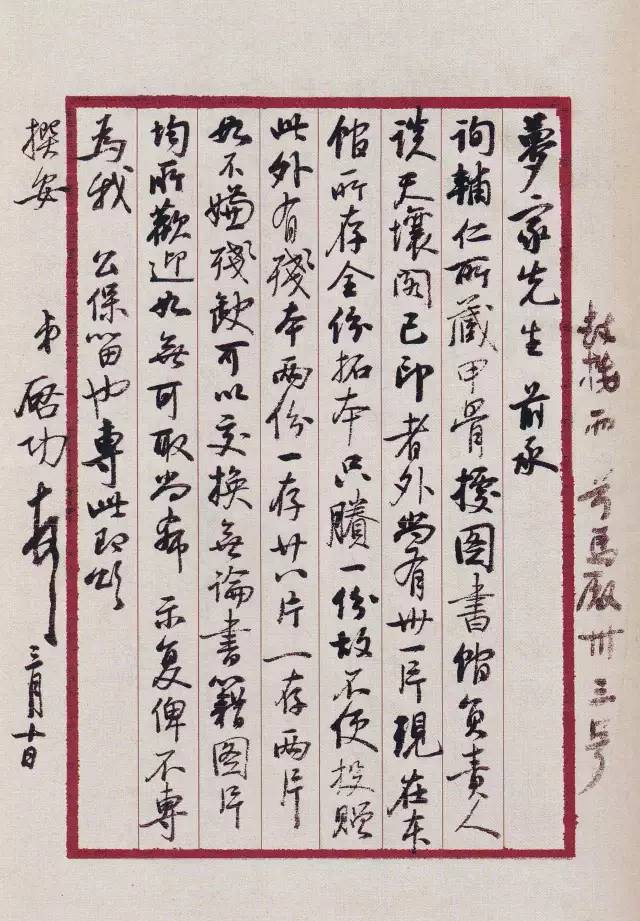 夢家先生 前承
詢輔仁所藏甲骨據图書館負責人
談天壤阁已印者外尚有卅一片現在本
館所存全份拓本只賸一份故不便投贈
此外有殘本兩份一存廿八片一存兩片
如不嫌殘缺可以交换無論書籍图片
均所歡迎如無可取尚希 示复俾不專
為我 公保留也專此即頌
撰安
弟启功
三月十日
黄馬廠卅三号